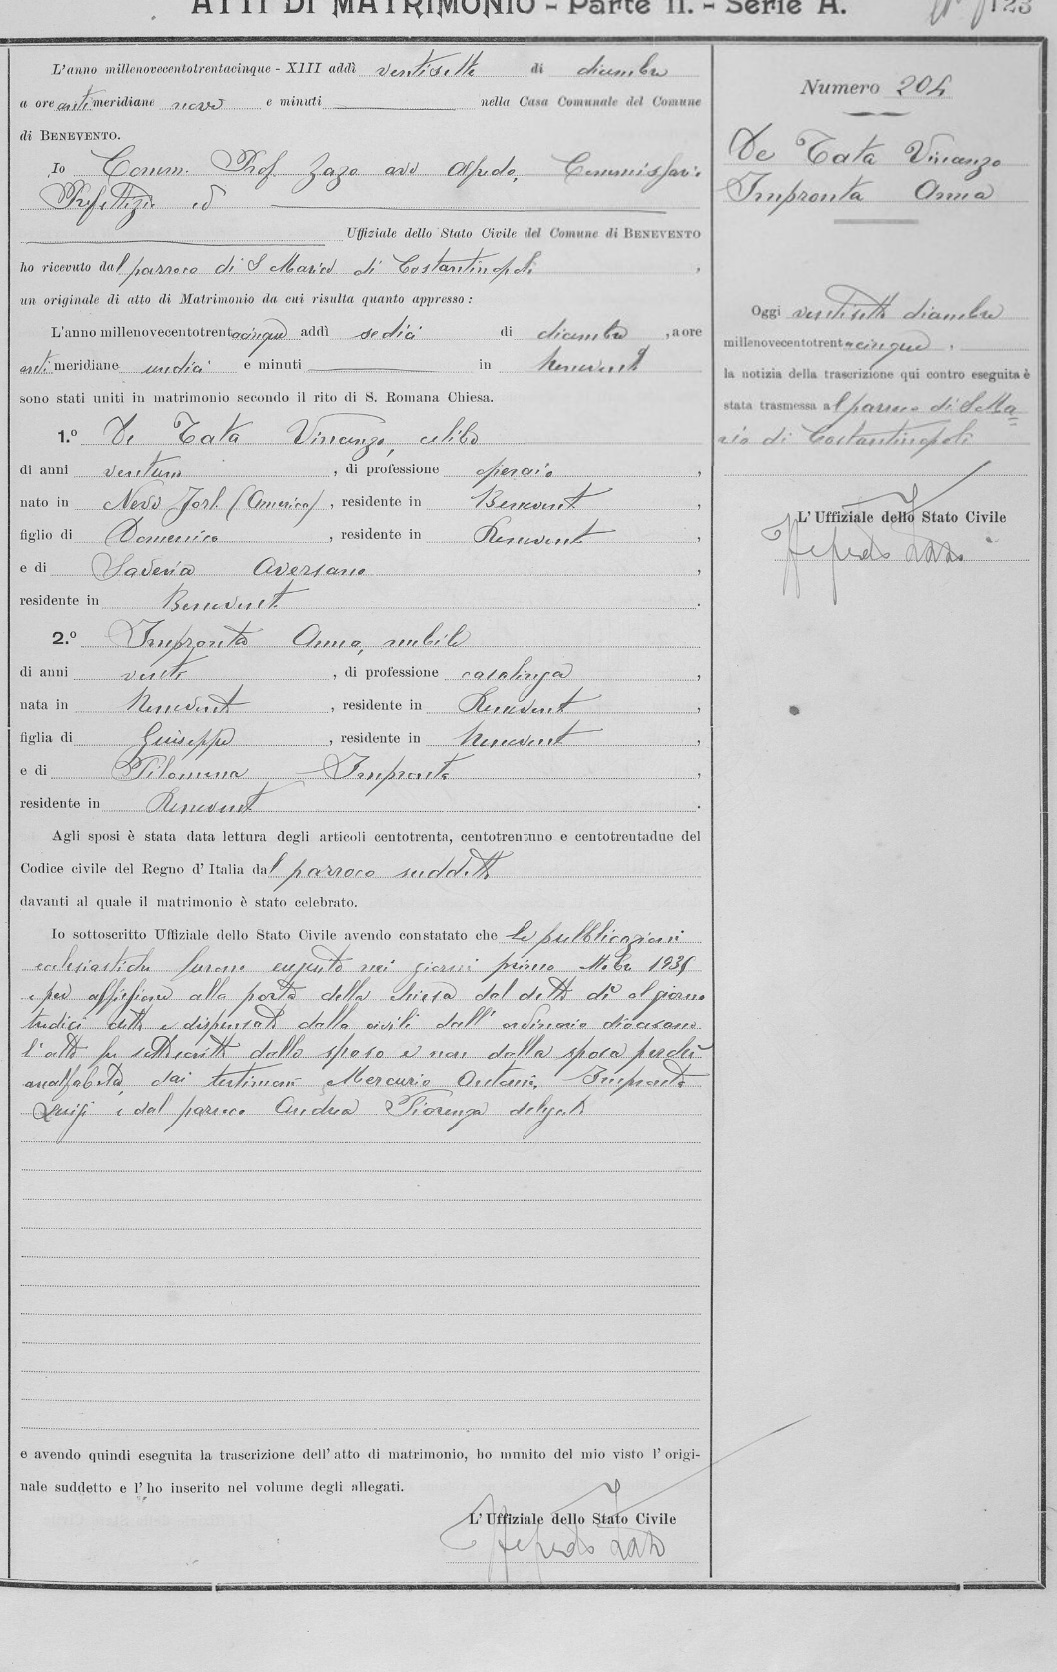 ATTI DI MATRIMONIO - Parte II. - Serie A.
123
L'anno millenovecentotrentacinque - XIII addì ventisette di dicembre
a ore antimeridiane nove e minuti nella Casa Comunale del Comune
di BENEVENTO.
Io Comm. Prof. Zazo avv Alfredo, Commissario
Prefettizio ed
Uffiziale dello Stato Civile del Comune di BENEVENTO
ho ricevuto dal parroco di S Maria di Costantinopoli,
un originale di atto di Matrimonio da cui risulta quanto appresso:
L'anno millenovecentotrentacinque addì sedici di dicembre, a ore
antimeridiane undici e minuti in Benevento
sono stati uniti in matrimonio secondo il rito di S. Romana Chiesa.
1.° De Tata Vincenzo, celibe
di anni ventuno, di professione operaio,
nato in New Jork (America), residente in Benevento,
figlio di Domenico, residente in Benevento,
e di Saveria Aversano,
residente in Benevento.
2.° Impronta Anna, nubile
di anni venti, di professione casalinga,
nata in Benevento, residente in Benevento,
figlia di Giuseppe, residente in Benevento,
e di Filomena Impronta,
residente in Benevento.
Agli sposi è stata data lettura degli articoli centotrenta, centotrentuno e centotrentadue del
Codice civile del Regno d'Italia dal parroco suddetto
davanti al quale il matrimonio è stato celebrato.
Io sottoscritto Uffiziale dello Stato Civile avendo constatato che le pubblicazioni
ecclesiastiche furono eseguite nei giorni primo 1935
e per affissione alla porta della chiesa dal detto dì al giorno
tredici detto e dispensate dalla civili dall' ordinario diocesano
l'atto fu sottoscritto dallo sposo e non dalla sposa perchè
analfabeta, dai testimoni Mercurio Antonio, Impronta
Luigi e dal parroco Andrea Fiorenza delegato
e avendo quindi eseguita la trascrizione dell'atto di matrimonio, ho munito del mio visto l'origi-
nale suddetto e l'ho inserito nel volume degli allegati.
L'Uffiziale dello Stato Civile
Alfredo Zazo
Numero 204
De Tata Vincenzo
Impronta Anna
Oggi ventisette dicembre
millenovecentotrentacinque,
la notizia della trascrizione qui contro eseguita è
stata trasmessa al parroco di S Ma=
ria di Costantinopoli
L'Uffiziale dello Stato Civile
Alfredo Zazo